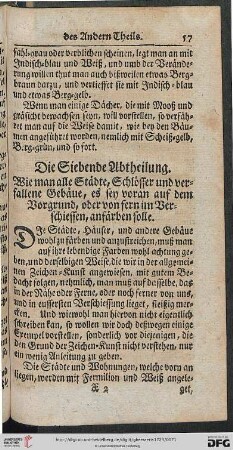 des Andern Theils. 57
fahl-grau oder verblichen scheinen, legt man an mit
Indisch-blau und Weiß, und umb der Verände-
rung willen thut man auch bißweilen etwas Berg-
braun darzu, und vertieffet sie mit Indisch-blau
und etwas Berg-gelb.
Wenn man einige Dächer, die mit Mooß und
gräsicht bewachsen seyn, will vorstellen, so verfäh-
ret man auf die Weise damit, wie bey den Bäu-
men angeführet worden, nemlich mit Scheiß-gelb,
Berg-grün, und so fort.
Die Siebende Abtheilung.
Wie man alle Städte, Schlösser und ver-
fallene Gebäue, es sey voran auf dem
Vorgrund, oder von fern im Ver-
schiessen, anfärben solle.
DIe Städte, Häuser, und andere Gebäue
wohl zu färben und anzustreichen, muß man
auf ihre lebendige Farben wohl achtung ge-
ben, und derselbigen Weise, die wir in der allgemei-
nen Zeichen-Kunst angewiesen, mit gutem Be-
dacht folgen, nehmlich, man muß auf dasselbe, das
in der Nähe oder Ferne, oder noch ferner von uns,
und in eusserster Verschiessung lieget, fleissig mer-
cken. Und wiewohl wir hier nicht eigentlich
schreiben kan, so wollen wir doch deßwegen einige
Exempel vorstellen, sonderlich vor diejenigen, die
den Grund der Zeichen-Kunst nicht verstehen, nur
ein wenig Anleitung zu geben.
Die Städte und Wohnungen, welche vorn an
liegen, werden mit Fermilion und Weiß angele-
get,
UNIVERSITÄTS-
BIBLIOTHEK
HEIDELBERG
DFG